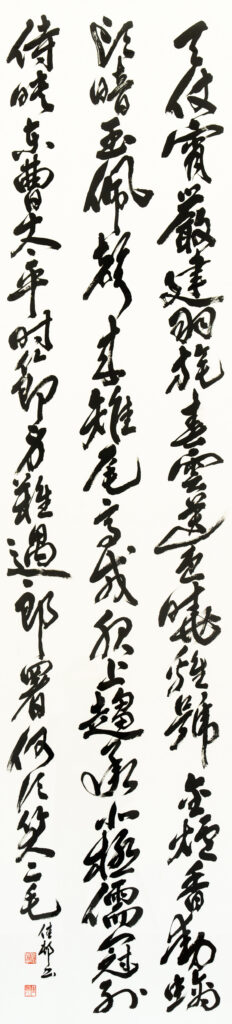 天仗宵嚴建羽旄春雲送色曉雞號金爐香動螭
頭暗玉佩聲來雉尾高戎服上趨承北極儒冠列
侍映東曹太平時節身難遇郎署何須笑二毛